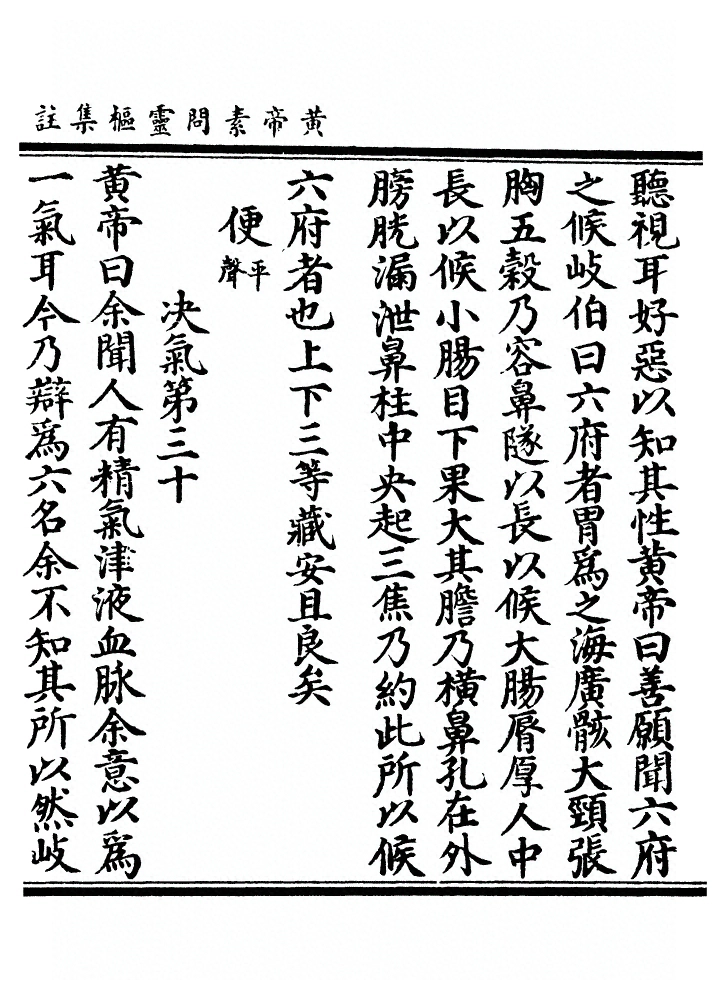 黃帝素問靈樞集註
聽視耳好惡以知其性黃帝曰善願聞六府
之候岐伯曰六府者胃爲之海廣骸大頸張
胸五穀乃容鼻隧以長以候大腸脣厚人中
長以候小腸目下果大其膽乃橫鼻孔在外
膀胱漏泄鼻柱中央起三焦乃約此所以候
六府者也上下三等藏安且良矣
便平聲
決氣第三十
黃帝曰余聞人有精氣津液血脉余意以爲
一氣耳今乃辯爲六名余不知其所以然岐